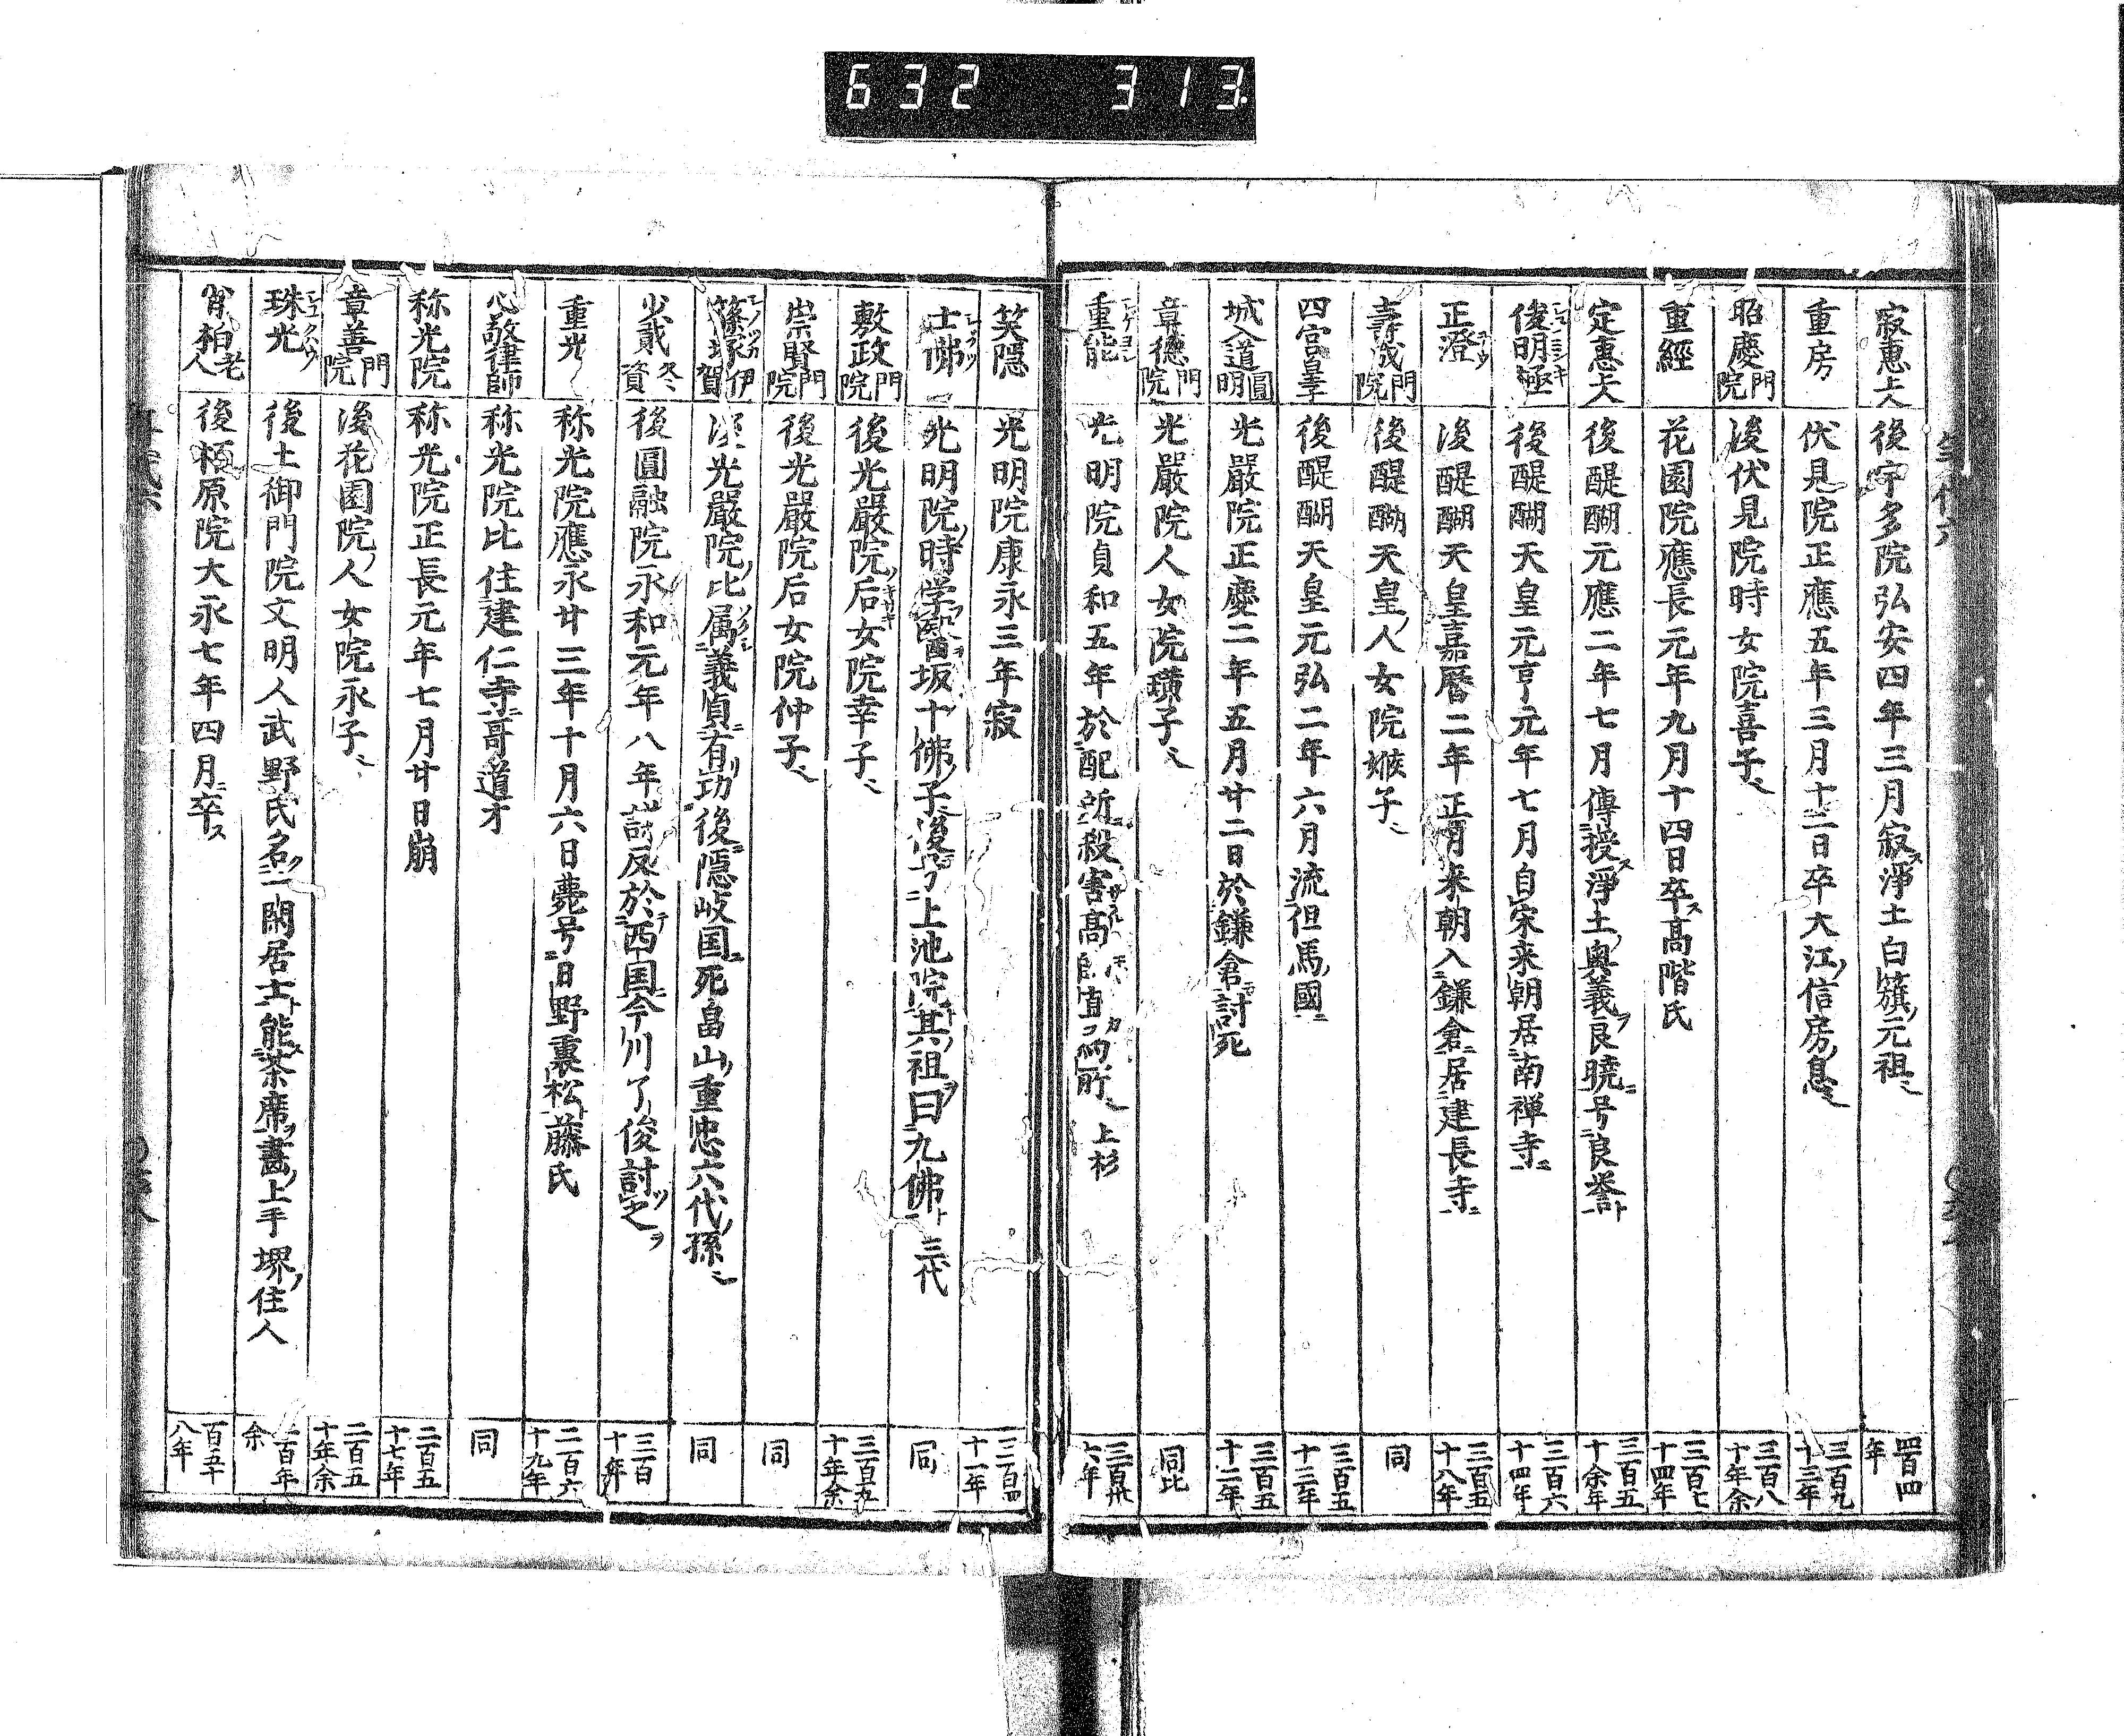 632 313
寂惠上人 後宇多院弘安四年三月寂ス淨土白籏ノ元祖ニ 四百四年
重房 伏見院正應五年三月十二日卒大江ノ信房ノ息ニ 三百九十三年
昭慶門院 後伏見院時女院喜子ニ 三百八十年余
重經 花園院應長元年九月十四日卒ス高階氏 三百七十四年
定惠上人 後醍醐元應二年七月傳授ス淨土ノ奥義ヲ良曉ニ号ニ良誉ト 三百五十余年
俊明極 後醍醐天皇元亨元年七月自宋来朝居南禅寺ニ 三百六十四年
正澄 後醍醐天皇嘉暦二年正月来朝入鎌倉ニ居建長寺ニ 三百五十八年
壽成門院 後醍醐天皇ノ人女院㜸子ニ 同
四宮皇子 後醍醐天皇元弘二年六月流但馬ノ國ニ 三百五十三年
城入道圓明 光嚴院正慶二年五月廿二日於鎌倉討死 三百五十二年
章德門院 光嚴院人女院璜子ニ 同比
重能 光明院貞和五年於配所ニ殺害高師直カ所ニ 上杉 三百卅六年
笑隱 光明院康永三年寂 三百四十一年
士佛 光明院ノ時学醫ヲ坂十佛ノ子後ニ上池院ト其ノ祖ヲ曰九佛ト 三代 同
敷政門院 後光嚴院ノ后女院幸子ニ 三百五十年余
崇賢門院 後光嚴院后女院仲子ニ 同
篠塚伊賀 後光嚴院ノ比属義貞ニ有リ功後ニ隱岐国ニ死畠山ノ重忠六代ノ孫ニ 同
少貳冬資 後圓融院永和元年八年謀反於テ西国ニ今川了俊討之ヲ 三百十年
重光 称光院應永廿三年十月六日薨号ニ日野裏松ト藤氏 二百六十九年
心敬律師 称光院比住建仁寺ニ哥道才 同
称光院 称光院正長元年七月廿日崩 二百五十七年
章善門院 後花園院ノ人女院永子ニ 二百五十年余
珠光 後土御門院文明人武野氏名ノ一閑居士ト能ス茶席ヲ畫ノ上手 堺ノ住人 二百年余
肖柏老人 後栢原院大永七年四月ニ卒ス 百五十八年